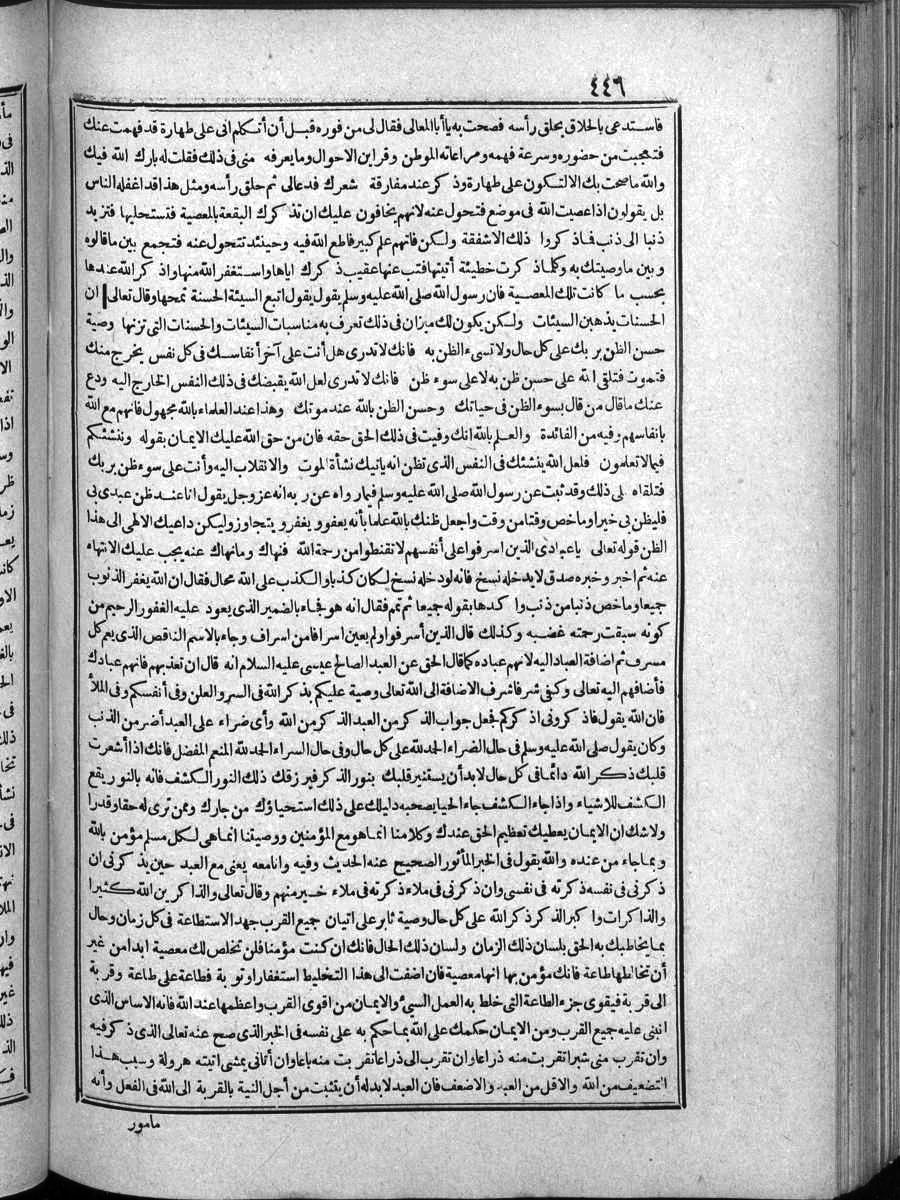 ٤٤٦
فاستدعى بالحلاق يحلق رأسه فصحت به يا أبا المعالى فقال لى من فوره قبل أن أتكلم انى على طهارة قد فهمت عنك
فتعجبت من حضوره وسرعة فهمه ومراعاته الموطن وقراين الاحوال وما يعرفه منى فى ذلك فقلت له بارك الله فيك
والله ما صحت بك الا لتكون على طهارة وذكر عند مفارقة شعرك فدعا لى ثم حلق رأسه ومثل هذا قد اغفله الناس
بل يقولون اذا عصيت الله فى موضع فتحول عنه لانهم يخافون عليك ان تذكرك البقعة بالمعصية فتستحليها فتزيد
ذنبا الى ذنب فما ذكروا ذلك الا شفقة ولكن فاتهم علم كبير فاطع الله فيه وحينئذ تتحول عنه فتجمع بين ما قالوه
وبين ما وصيتك به وكلما ذكرت خطيئة أتيتها فتب عنها عقيب ذكرك اياها واستغفر الله منها واذكر الله عندها
بحسب ما كانت تلك المعصية فان رسول الله صلى الله عليه وسلم يقول يقول اتبع السيئة الحسنة تمحها وقال تعالى ان
الحسنات يذهبن السيئات ولكن يكون لك ميزان فى ذلك تعرف به مناسبات السيئات والحسنات التى تزنها وصية
حسن الظن بربك على كل حال ولا تسىء الظن به فانك لا تدرى هل أنت على آخر أنفاسك فى كل نفس يخرج منك
فتموت فتلقى الله على حسن ظن به لا على سوء ظن فانك لا تدرى لعل الله يقبضك فى ذلك النفس الخارج اليه ودع
عنك ما قال من قال بسوء الظن فى حياتك وحسن الظن بالله عند موتك وهذا عند العلماء بالله مجهول فانهم مع الله
بانفاسهم وفيه من الفائدة والعلم بالله انك وفيت فى ذلك الحق حقه فان من حق الله عليك الايمان بقوله وننشئكم
فيما لا تعلمون فلعل الله ينشئك فى النفس الذى تظن انه ياتيك نشأة الموت والانقلاب اليه وأنت على سوء ظن بربك
فتلقاه على ذلك وقد ثبت عن رسول الله صلى الله عليه وسلم فيما رواه عن ربه انه عز وجل يقول انا عند ظن عبدى بى
فليظن بى خيرا وما خص وقتا من وقت واجعل ظنك بالله علما بأنه يعفو ويغفر ويتجاوز وليكن داعيك الالهى الى هذا
الظن قوله تعالى ياعبادى الذين اسرفوا على أنفسهم لا تقنطوا من رحمة الله فنهاك وما نهاك عنه يجب عليك الانتهاء
عنه ثم اخبر وخبره صدق لا يدخله نسخ فانه لو دخله نسخ لكان كذبا والكذب على الله محال فقال ان الله يغفر الذنوب
جميعا وما خص ذنبا من ذنب وا كدها بقوله جميعا ثم تمم فقال انه هو فجاء بالضمير الذى يعود عليه الغفور الرحيم من
كونه سبقت رحمته غضبه وكذلك قال الذين أسرفوا ولم يعين اسرافا من اسراف وجاء بالاسم الناقص الذى يعم كل
مسرف ثم اضافة العباد اليه لانهم عباده كما قال الحق عن العبد الصالح عيسى عليه السلام انه قال ان تعذبهم فانهم عبادك
فأضافهم اليه تعالى وكفى شرفا شرف الاضافة الى الله تعالى وصية عليكم بذكر الله فى السر والعلن وفى أنفسكم وفى الملأ
فان الله يقول فاذكرونى اذكركم فجعل جواب الذكر من العبد الذكر من الله وأى ضراء على العبد أضر من الذنب
وكان يقول صلى الله عليه وسلم فى حال الضراء الحمد لله على كل حال وفى حال السراء الحمد لله المنعم المفضل فانك اذا أشعرت
قلبك ذكر الله دائما فى كل حال لا بد أن يستنير قلبك بنور الذكر فيرزقك ذلك النور الكشف فانه بالنور يقع
الكشف للاشياء واذا جاء الكشف جاء الحيا يصحبه دليلك على ذلك استحياؤك من جارك وممن ترى له حقا وقدرا
ولا شك ان الايمان يعطيك تعظيم الحق عندك وكلامنا انما هو مع المؤمنين ووصيتنا انما هى لكل مسلم مؤمن بالله
وبما جاء من عنده والله يقول فى الخبر المأثور الصحيح عنه الحديث وفيه وانا معه يعنى مع العبد حين يذكرنى ان
ذكرنى فى نفسه ذكرته فى نفسى وان ذكرنى فى ملاء ذكرته فى ملاء خير منهم وقال تعالى والذاكرين الله كثيرا
والذاكرات وا كبر الذكر ذكر الله على كل حال وصية ثابر على اتيان جميع القرب جهد الاستطاعة فى كل زمان وحال
بما يخاطبك به الحق بلسان ذلك الزمان ولسان ذلك الحال فانك ان كنت مؤمنا فلن تخلص لك معصية ابدا من غير
أن تخالطها طاعة فانك مؤمن بها انها معصية فان اضفت الى هذا التخليط استغفارا وتوبة فطاعة على طاعة وقربة
الى قربة فيقوى جزء الطاعة التى خلط به العمل السيئ والايمان من اقوى القرب واعظمها عند الله فانه الاساس الذى
انبنى عليه جميع القرب ومن الايمان حكمك على الله بما حكم به على نفسه فى الخبر الذى صح عنه تعالى الذى ذكر فيه
وان تقرب منى شبرا تقربت منه ذراعا وان تقرب الى ذراعا تقربت منه باعا وان أتانى يمشى اتيته هرولة وسبب هذا
التضعيف من الله والاقل من العبد والاضعف فان العبد لا بد له أن يتثبت من أجل النية بالقربة الى الله فى الفعل وأنه
مامور